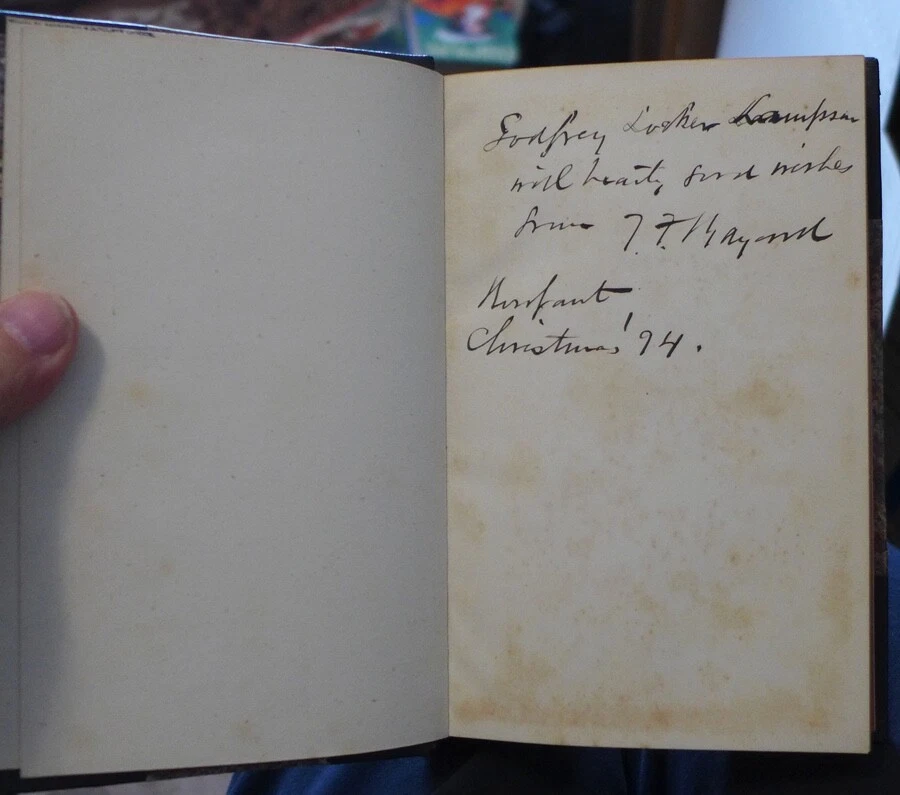 Godfrey Locker Lampson
with hearty good wishes
from T. F. Bayard
Christmas '94.